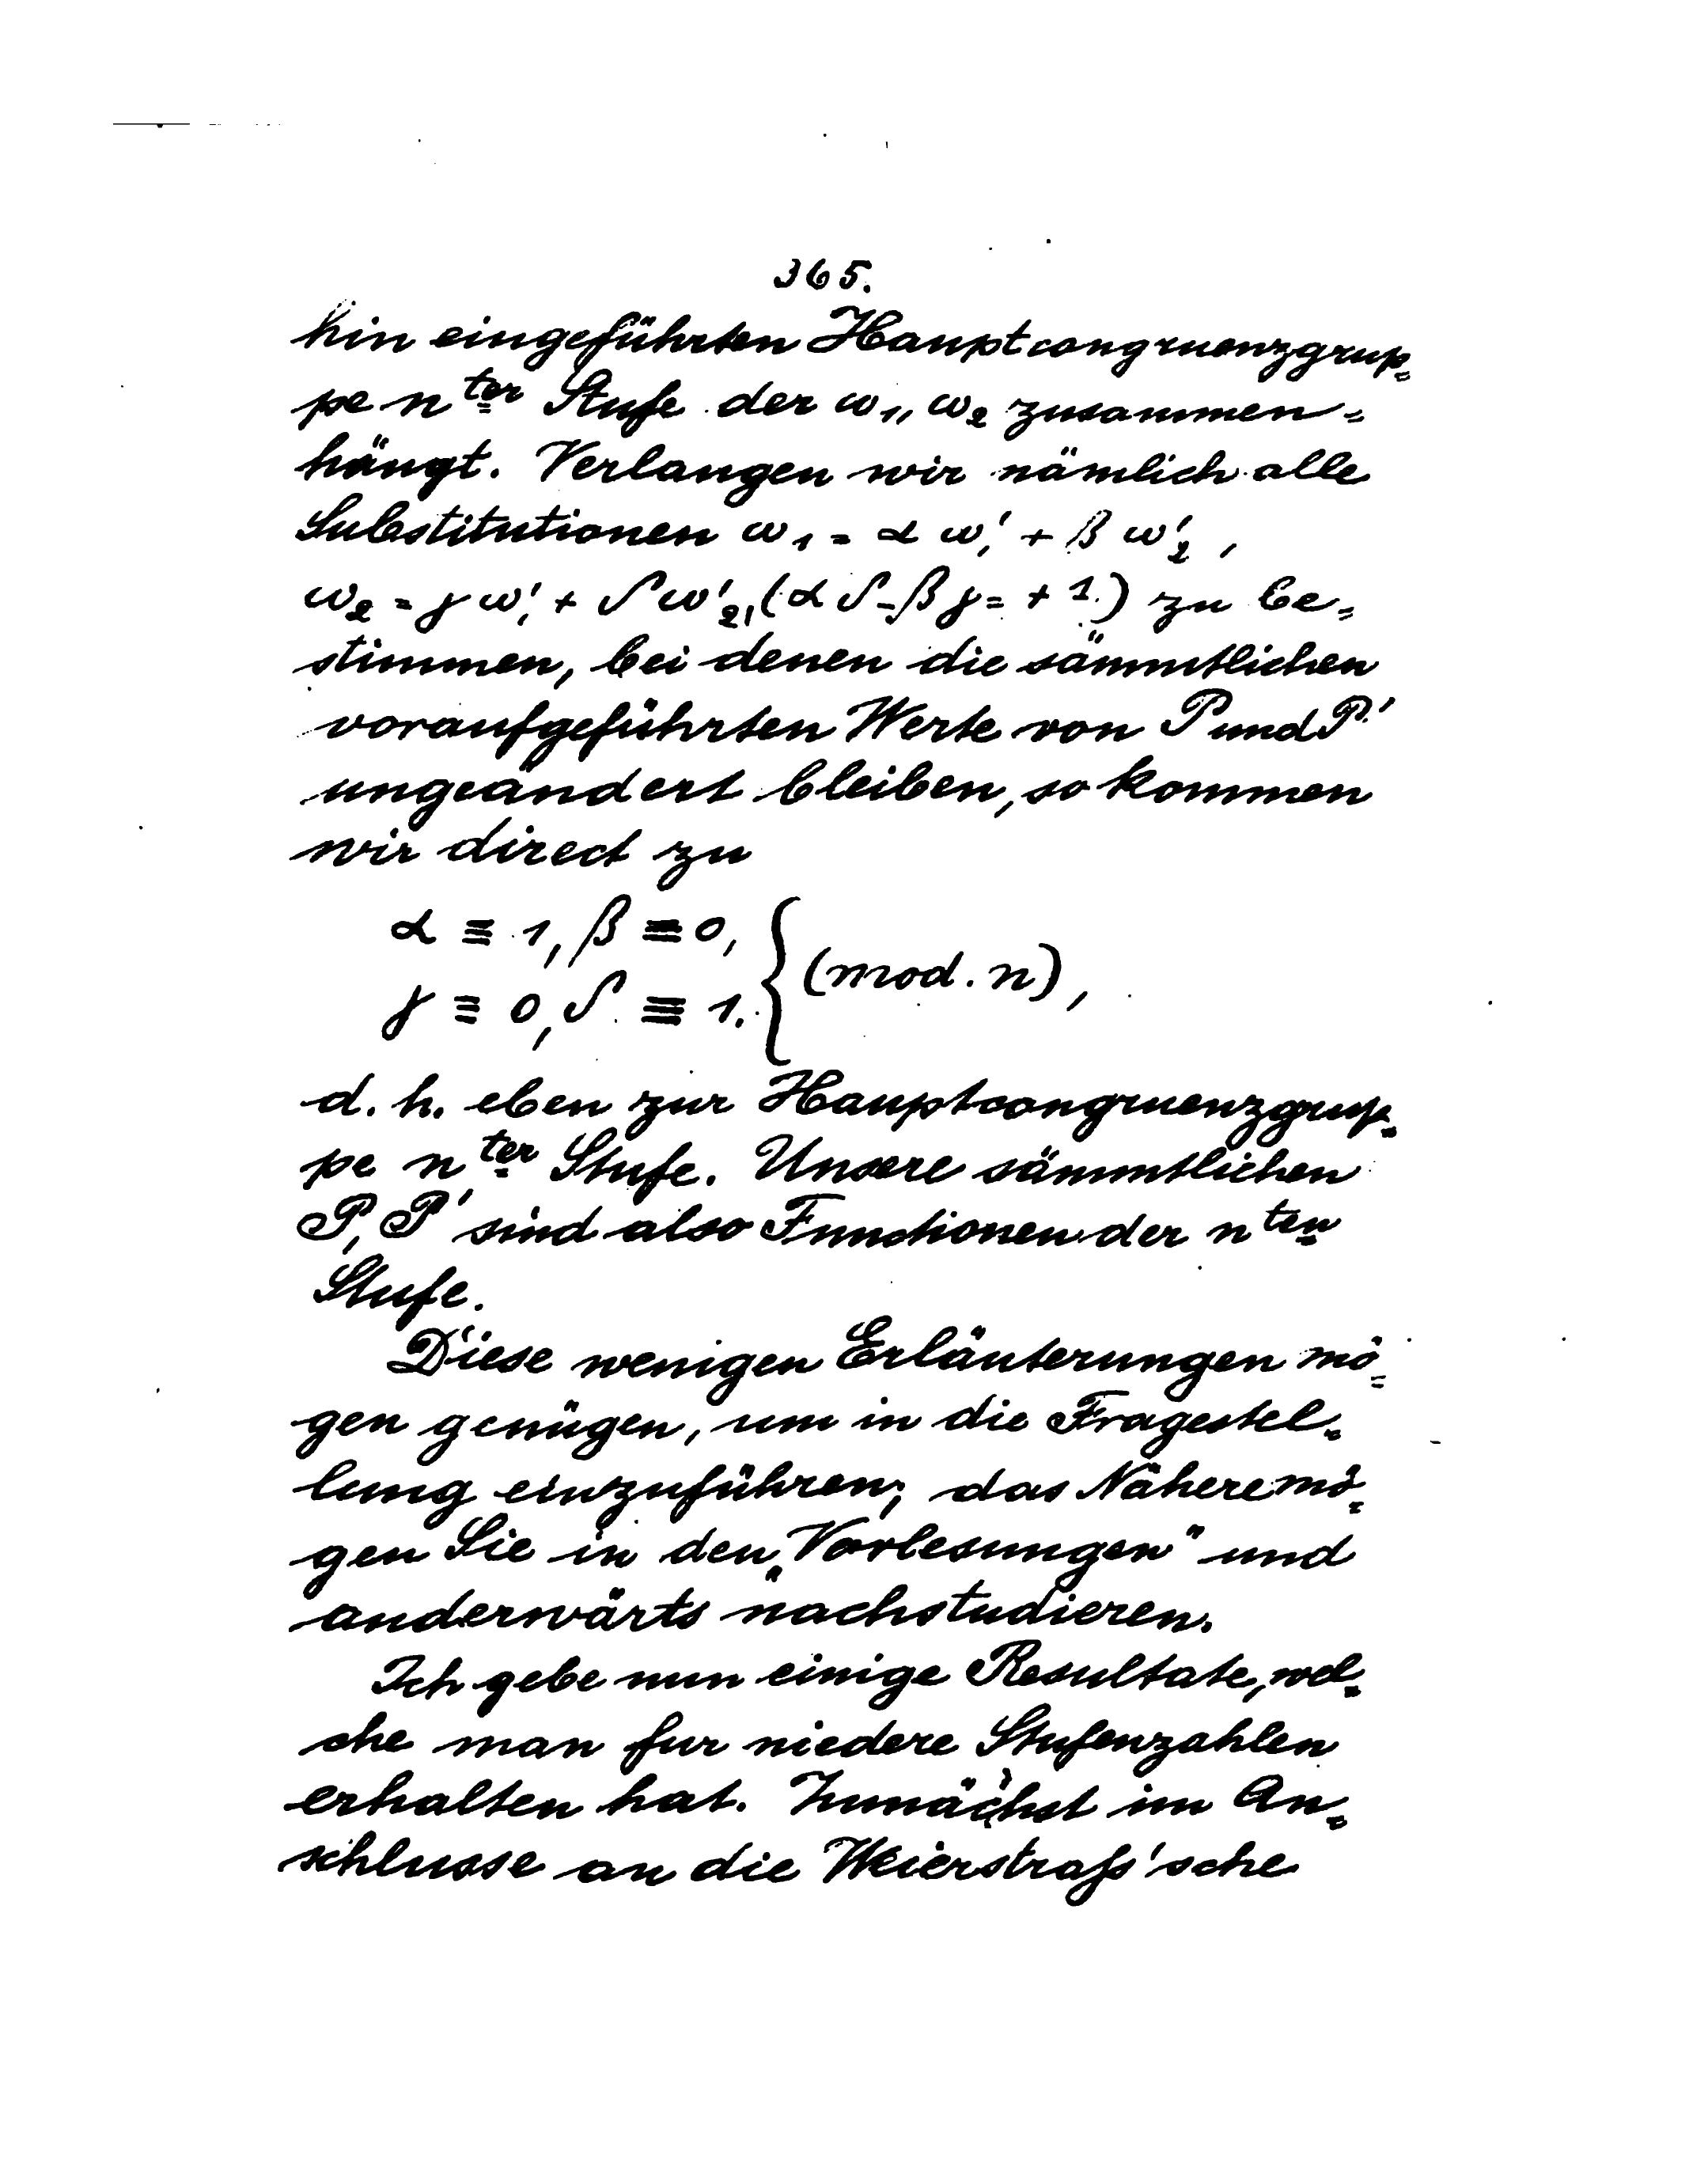 365.
hin eingeführten Hauptcongruenzgrup=
pe n ter Stufe der ω₁, ω₂ zusammen=
hängt. Verlangen wir nämlich alle
Substitutionen ω₁ = α ω₁′ + β ω₂′,
ω₂ = γ ω₁′ + δ ω₂′, (α δ - β γ = + 1.) zu be=
stimmen, bei denen die sämmtlichen
voraufgeführten Werte von P und P′
ungeändert bleiben, so kommen
wir direct zu
α ≡ 1, β ≡ 0,
γ ≡ 0, δ ≡ 1. { (mod. n),
d. h. eben zur Hauptcongruenzgrup=
pe n ter Stufe. Unsere sämmtlichen
P, P′ sind also Functionen der n ten
Stufe.
Diese wenigen Erläuterungen mö=
gen genügen, um in die Fragestel=
lung einzuführen; das Nähere mö=
gen Sie in den „Vorlesungen" und
anderwärts nachstudieren.
Ich gebe nun einige Resultate, wel=
che man fur niedere Stufenzahlen
erhalten hat. Zunächst im An=
schlusse an die Weierstraß'sche